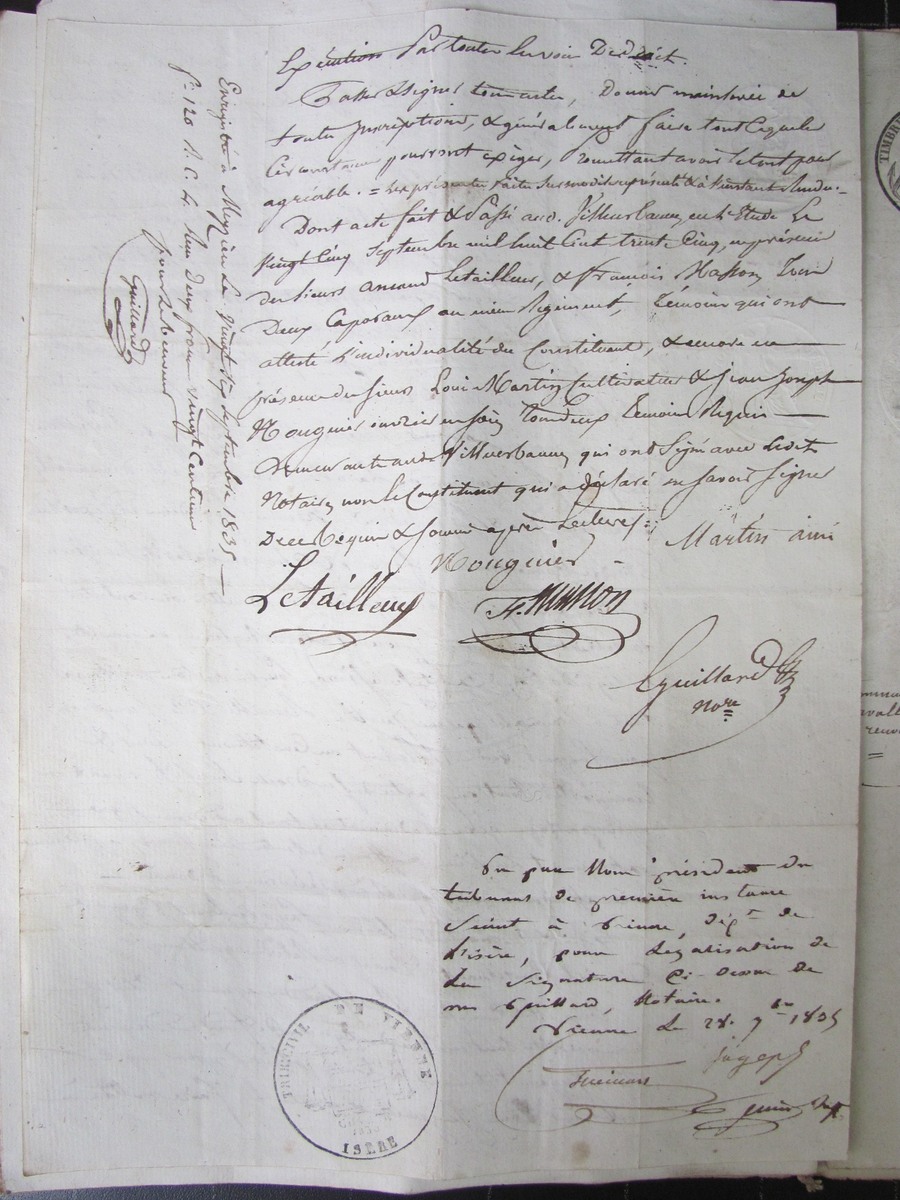 Exécution par toutes les voies De droit.
Passer & signer tous actes, Donner mainlevée de
toute Inscription, & généralement faire tout ce que les
Circonstances pourront exiger, promettant avoir le tout pour
agréable. = les présentes faites sur modèle représenté & à l'instant rendu.
Dont acte fait & Passé aud. Villeurbanne, en l'Etude Le
vingt Cinq Septembre mil huit Cent trente Cinq, en présence
des sieurs Letailleur, & François Masson, tous
Deux Caporaux au même Régiment, témoins qui ont
attesté l'individualité du Constituant, & encore en
présence des sieurs Louis Martin Cultivateur & Jean Joseph
Nouguier ouvrier en soie, tous deux témoins Requis
Demeurant aud. Villeurbanne, qui ont Signé avec Ledit
Notaire, non le Constituant qui a déclaré ne savoir signer
De ce Requis & sommé après Lecture.
Martin ainé
Nouguier
Letailleur
Fs. Masson
Guillard
Nore
Enregistré à Meyzieu Le vingt sept septembre 1835
fo. 120 R. C. 4. Reçu deux francs vingt Centimes
pour Le Receveur
Guillard
Vu par Nous président du
tribunal de première instance
Séant à Vienne, dépt. de
l'isère, pour Légalisation de
La Signature Ci-dessus de
me Guillard, Notaire.
Vienne Le 28. 7bre 1835
TRIB. CIVIL DE VIENNE
ISERE
TIMBRE